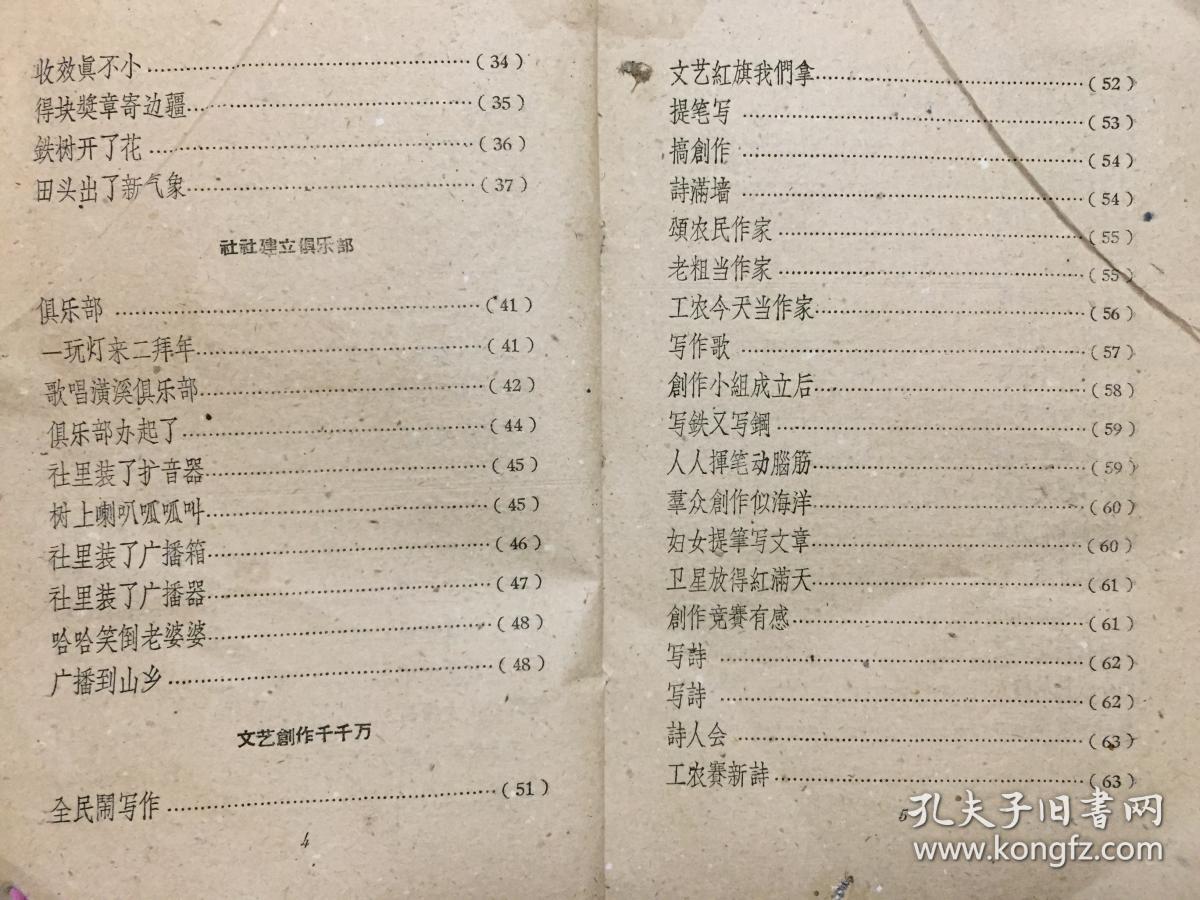 收效眞不小……(34)
得块獎章寄边疆……(35)
鉄树开了花……(36)
田头出了新气象……(37)
社社建立俱乐部
俱乐部……(41)
一玩灯来二拜年……(41)
歌唱潢溪俱乐部……(42)
俱乐部办起了……(44)
社里装了扩音器……(45)
树上喇叭呱呱叫……(45)
社里装了广播箱……(46)
社里装了广播器……(47)
哈哈笑倒老婆婆……(48)
广播到山乡……(48)
文艺創作千千万
全民鬧写作……(51)
4
文艺紅旗我們拿……(52)
提笔写……(53)
搞創作……(54)
詩滿墙……(54)
頌农民作家……(55)
老粗当作家……(55)
工农今天当作家……(56)
写作歌……(57)
創作小組成立后……(58)
写鉄又写鋼……(59)
人人揮笔动腦筋……(59)
羣众創作似海洋……(60)
妇女提筆写文章……(60)
卫星放得紅滿天……(61)
創作竞賽有感……(61)
写詩……(62)
写詩……(62)
詩人会……(63)
工农賽新詩……(63)
5
孔夫子旧书网
www.kongfz.com